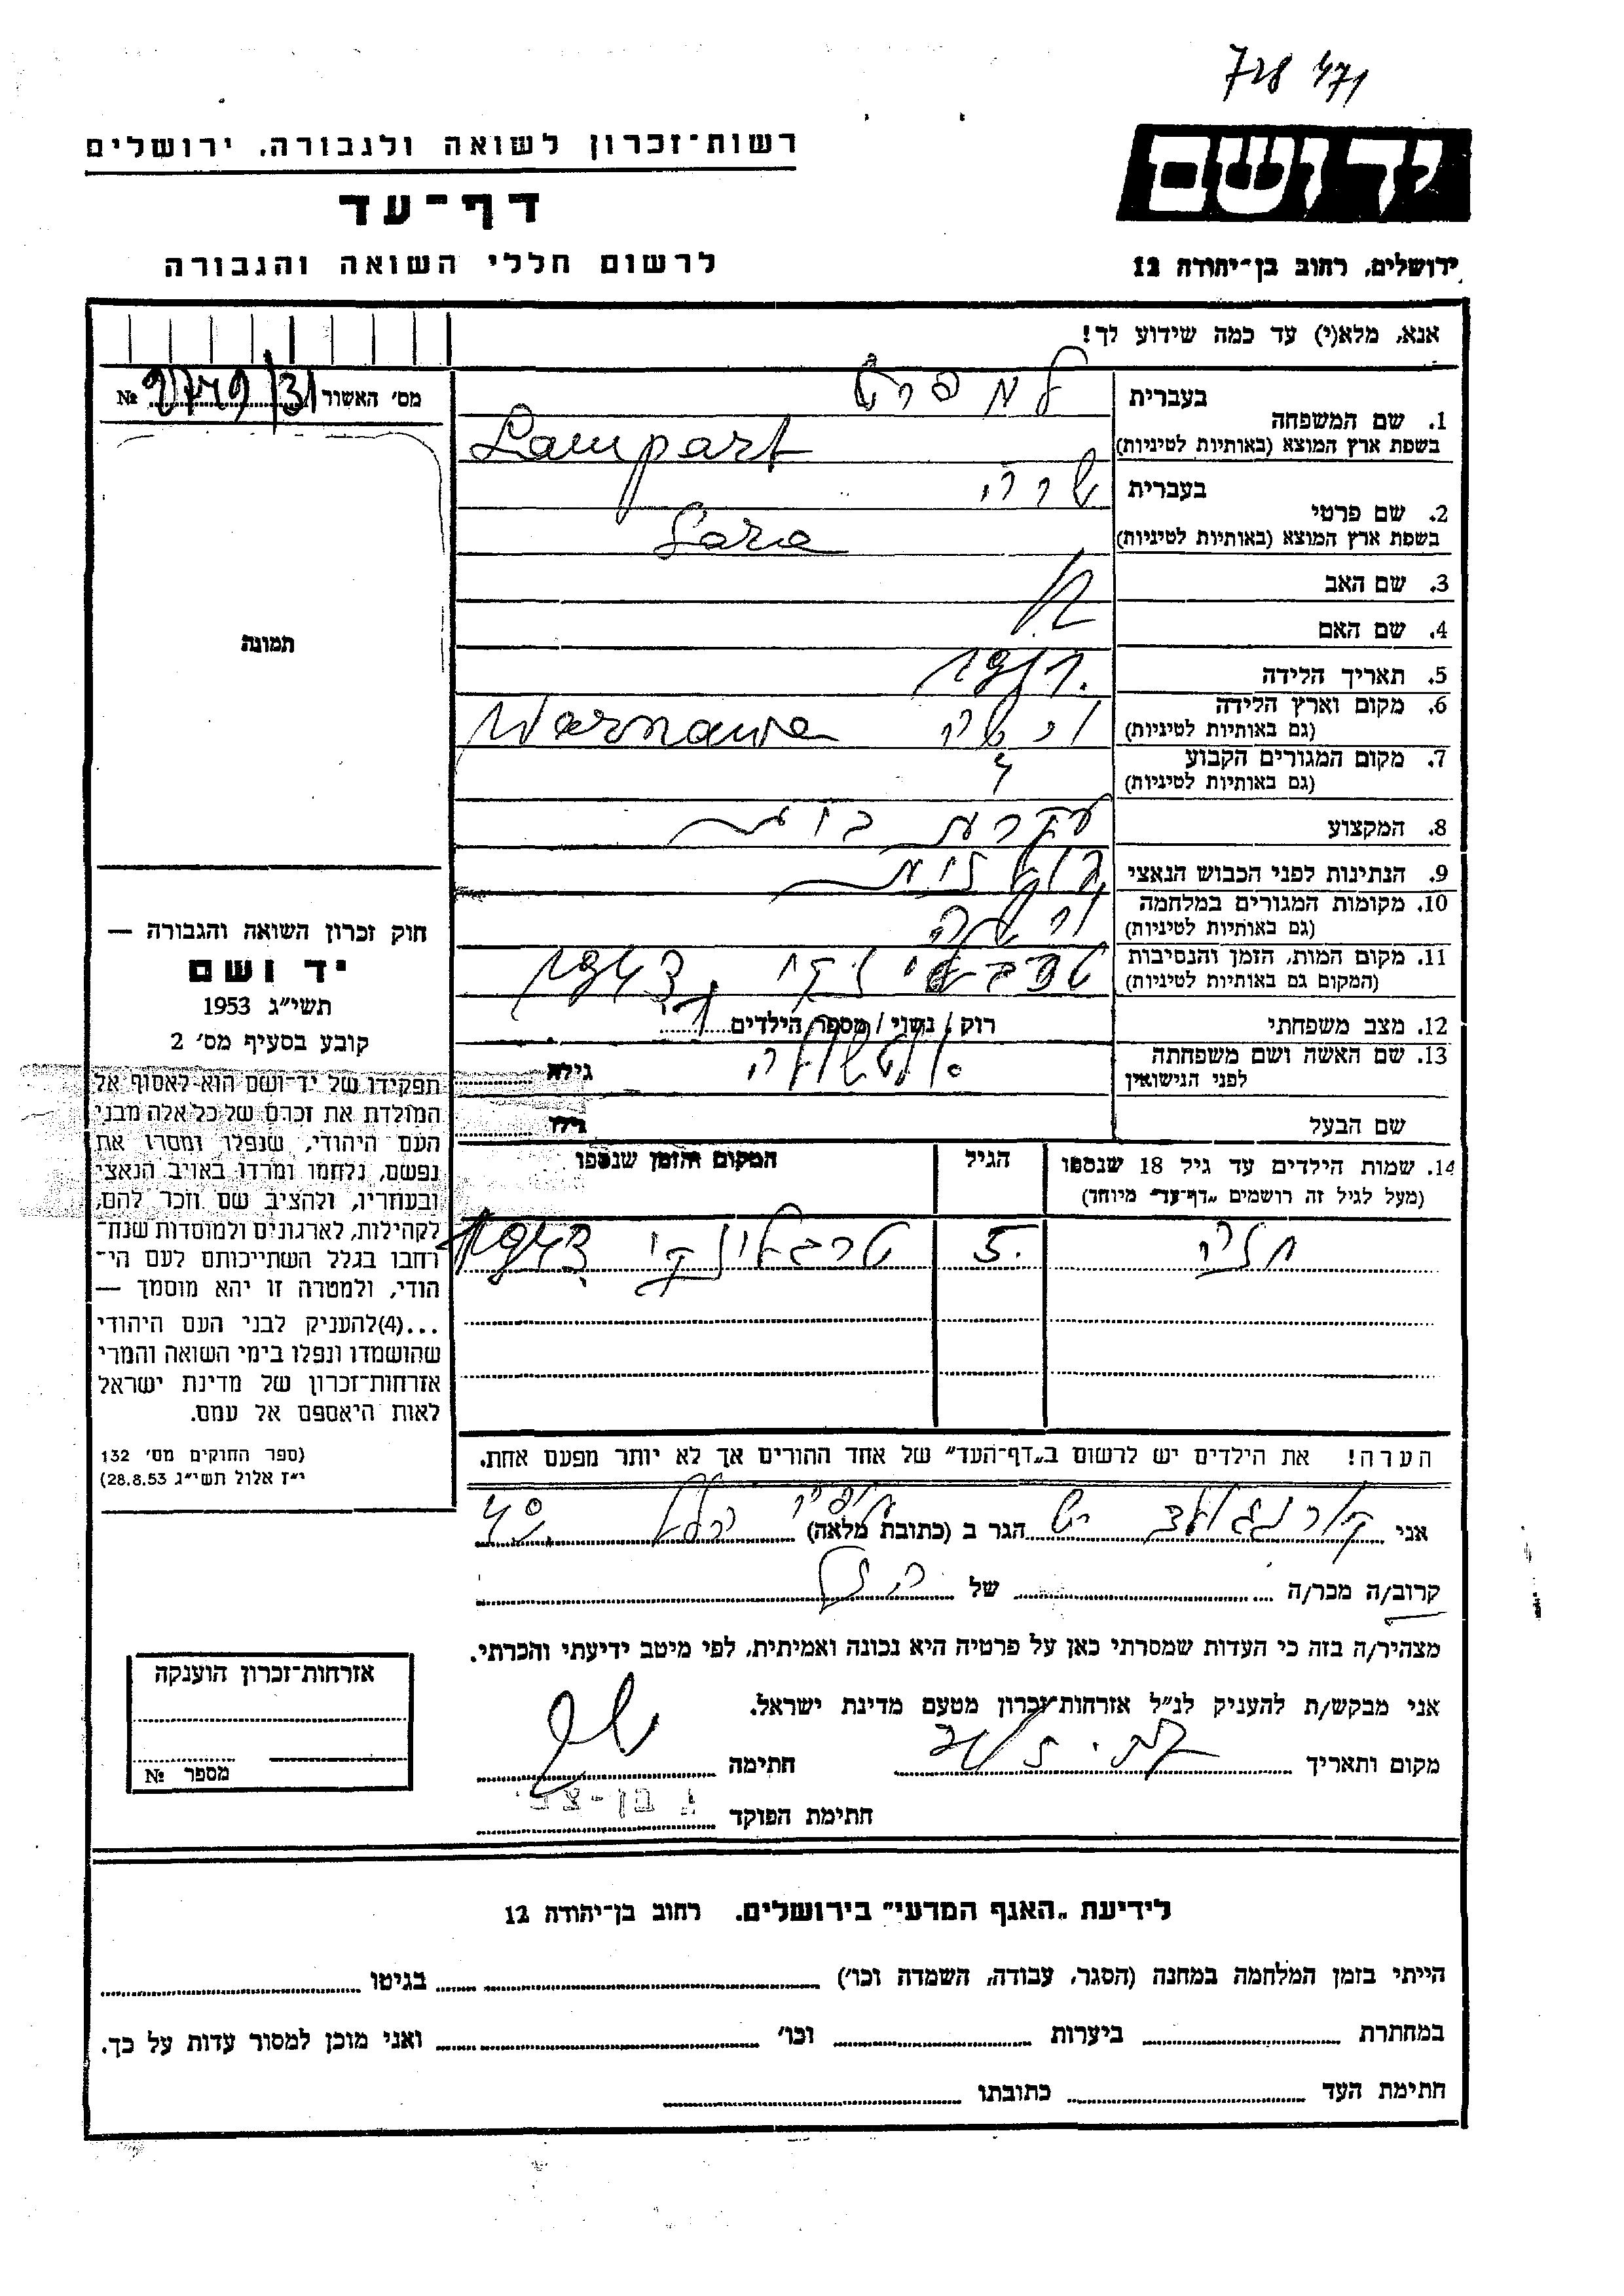 728 471
רשות־זכרון לשואה ולגבורה, ירושלים
יד ושם
דף־עד
לרשום חללי השואה והגבורה
ירושלים, רחוב בן־יהודה 12
אנא, מלא(י) עד כמה שידוע לך!
מס׳ האשור 2749/31 №
תמונה
בעברית למפרט
1. שם המשפחה
בשפת ארץ המוצא (באותיות לטיניות) Lampart
בעברית שרה
2. שם פרטי
בשפת ארץ המוצא (באותיות לטיניות) Sara
3. שם האב
4. שם האם
5. תאריך הלידה
6. מקום וארץ הלידה
(גם באותיות לטיניות) ורשה Warszawa
7. מקום המגורים הקבוע
(גם באותיות לטיניות)
8. המקצוע עקרת בית
9. הנתינות לפני הכבוש הנאצי פולנית
10. מקומות המגורים במלחמה
(גם באותיות לטיניות) ורשה
11. מקום המות, הזמן והנסיבות
(המקום גם באותיות לטיניות) טרבלינקי 1943
12. מצב משפחתי רוק / נשוי / מספר הילדים 1
13. שם האשה ושם משפחתה
לפני הנישואין גילה
שם הבעל גילו
14. שמות הילדים עד גיל 18 שנספו הגיל המקום והזמן שנספו
(מעל לגיל זה רושמים „דף־עד״ מיוחד)
5 טרבלינקי 1943
הערה! את הילדים יש לרשום ב„דף־העד״ של אחד ההורים אך לא יותר מפעם אחת.
אני הגר ב (כתובת מלאה)
קרוב/ה מכר/ה של
מצהיר/ה בזה כי העדות שמסרתי כאן על פרטיה היא נכונה ואמיתית, לפי מיטב ידיעתי והכרתי.
אני מבקש/ת להעניק לנ״ל אזרחות־זכרון מטעם מדינת ישראל.
מקום ותאריך חתימה
חתימת הפוקד בן-צבי
חוק זכרון השואה והגבורה —
יד ושם
תשי״ג 1953
קובע בסעיף מס׳ 2
תפקידו של יד־ושם הוא לאסוף אל
המולדת את זכרם של כל אלה מבני
העם היהודי, שנפלו ומסרו את
נפשם, נלחמו ומרדו באויב הנאצי
ובעוזריו, ולהציב שם וזכר להם,
לקהילות, לארגונים ולמוסדות שנח־
רחבו בגלל השתייכותם לעם הי־
הודי, ולמטרה זו יהא מוסמך —
...(4)להעניק לבני העם היהודי
שהושמדו ונפלו בימי השואה והמרי
אזרחות־זכרון של מדינת ישראל
לאות היאספם אל עמם.
(ספר החוקים מס׳ 132
י״ז אלול תשי״ג 28.8.53)
אזרחות־זכרון הוענקה
מספר №
לידיעת „האגף המדעי״ בירושלים, רחוב בן־יהודה 12
הייתי בזמן המלחמה במחנה (הסגר, עבודה, השמדה וכו׳) בגיטו
במחתרת ביערות וכו׳ ואני מוכן למסור עדות על כך.
חתימת העד כתובתו